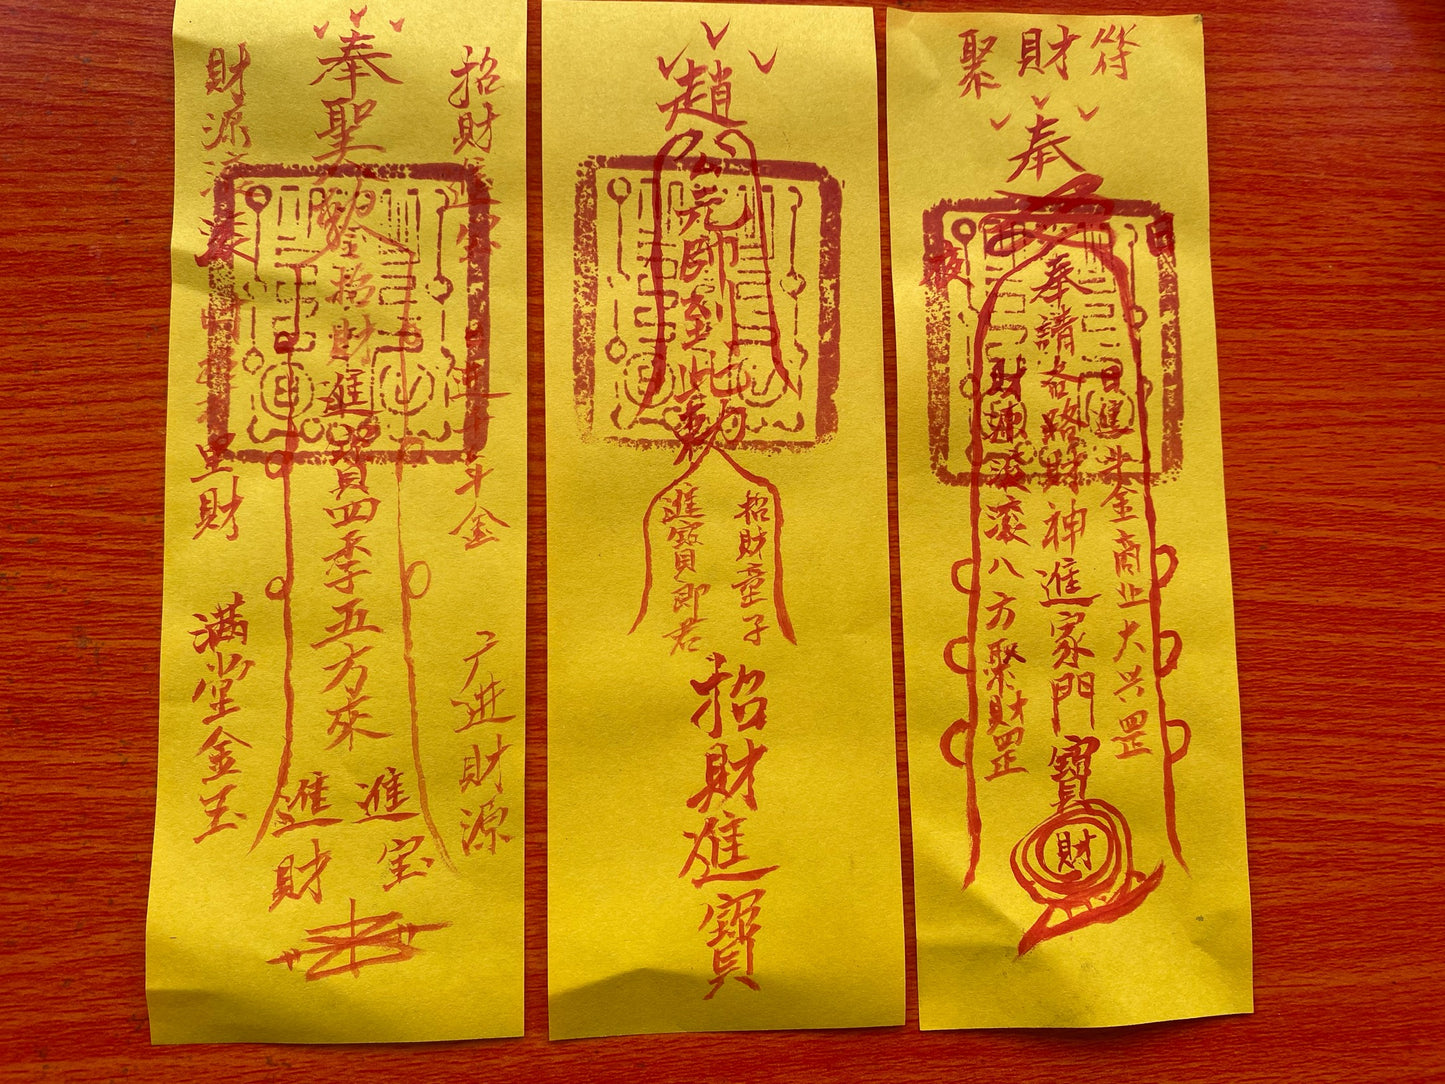 奉聖勅令招財進寶四季五方來
招財
斗金
广进財源
財源滚滚
里財
满堂金玉
進財
進宝
趙公元帥到此勅
招財童子
進寶郎君
招財進寶
聚財符
奉
奉請各路財神進家門寶
日進斗金商业大兴罡
財源滚滚八方聚財罡
財